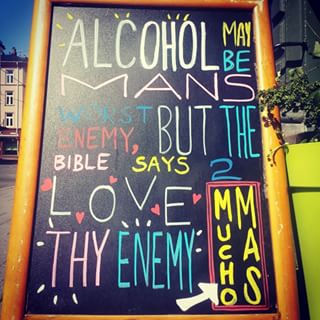 ALCOHOL MAY BE
MANS
WORST
ENEMY, BUT THE
BIBLE SAYS 2
LOVE
THY ENEMY
MUCHO MAS